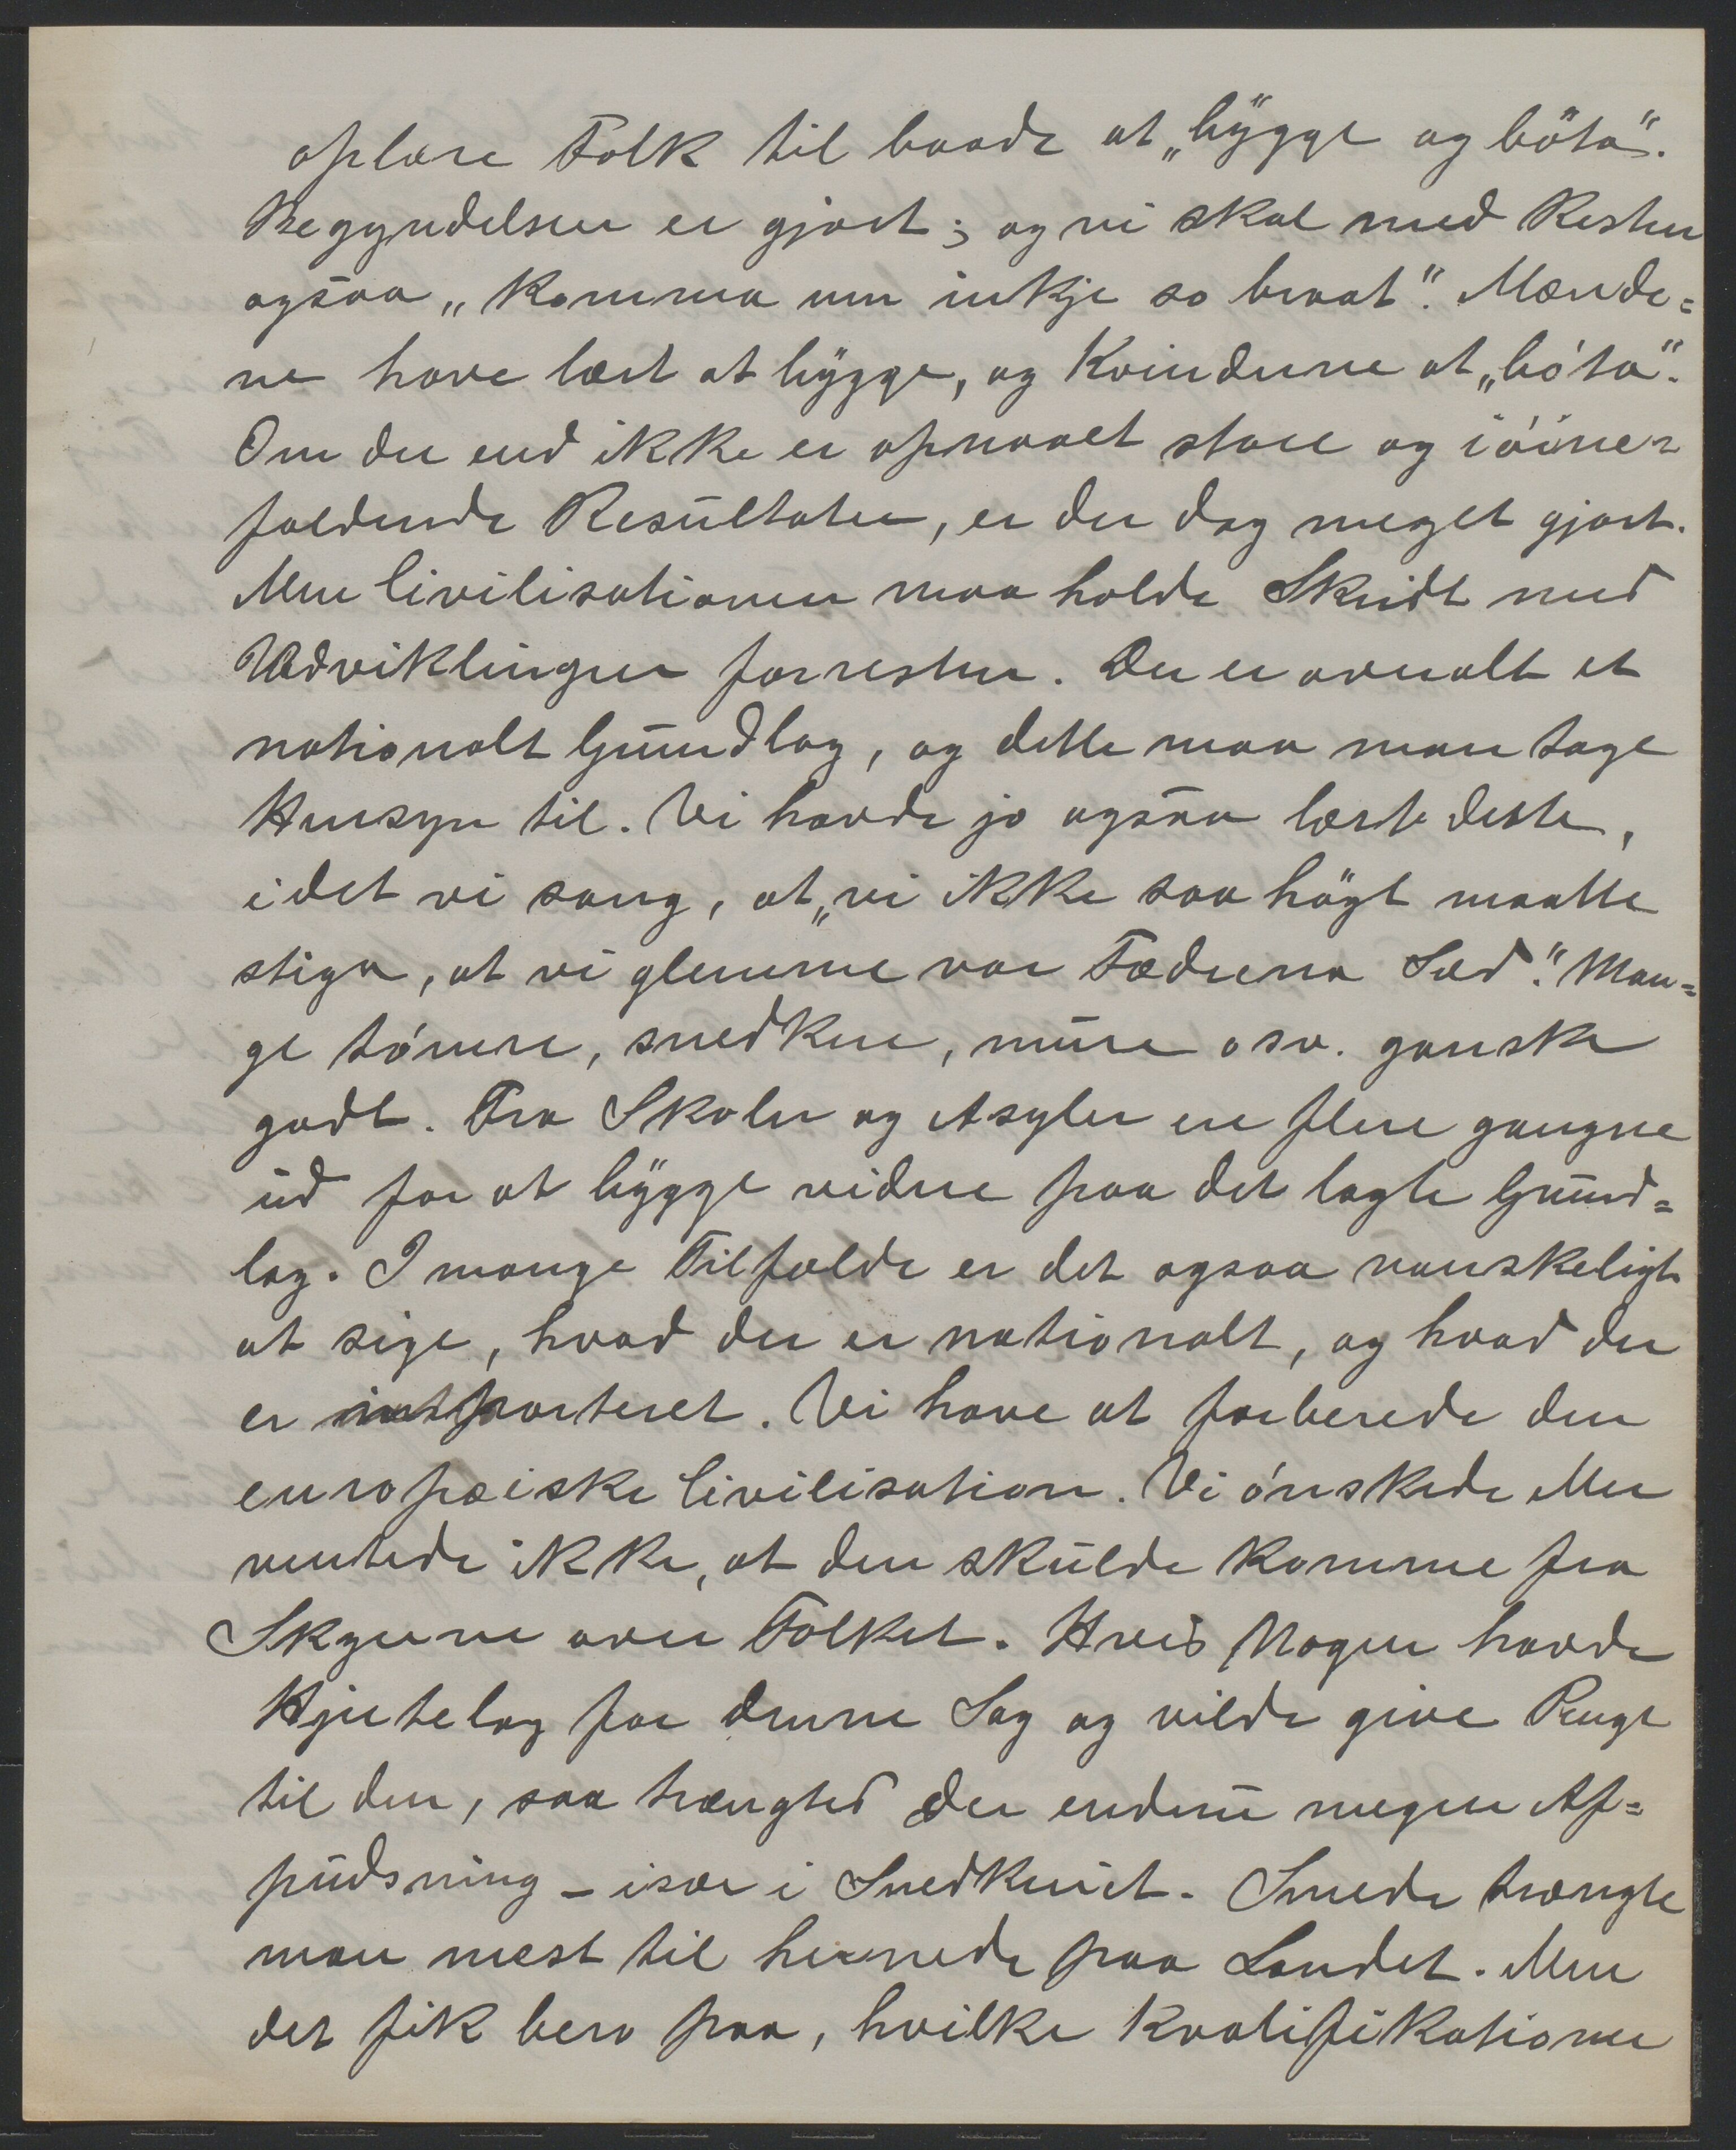 oplære Folk til baade at „bygge og böta“.
Begyndelsen er gjort; og vi skal med Resten
ogsaa „Komma um inkje so braat“. Mænde=
ne have lært at bygge, og Kvinderne at „böta“.
Om der end ikke er opnaaet store og iöine-
faldende Resultater, er der dog meget gjort.
Men Civilisationen maa holde Skridt med
Udviklingen forresten. Der er overalt et
nationalt Grundlag, og dette maa man tage
Hensyn til. Vi havde jo ogsaa lært dette,
idet vi sang, at „vi ikke saa högt maatte
stiga, at vi glemme vor Fædrena Sæd“. Man=
ge tömre, snedkre, mure osv. ganske
godt. Fra Skoler og Asyler ere flere gangne
ud for at bygge videre paa det lagte Grund=
lag. I mange Tilfælde er det ogsaa vanskeligt
at sige, hvad der er nationalt, og hvad der
er importeret. Vi have at forberede den
europæiske Civilisation. Vi önskede Men
ventede ikke, at den skulde komme fra
Skyerne over Folket. Hvis Nogen havde
Hjertelag for denne Sag og vilde give Penge
til den, saa trængtes der endnu megen Af=
pudsning - især i Snedkeriet. Smede trængte
man mest til hernede paa Landet. Men
det fik bero paa, hvilke Kvalifikationer